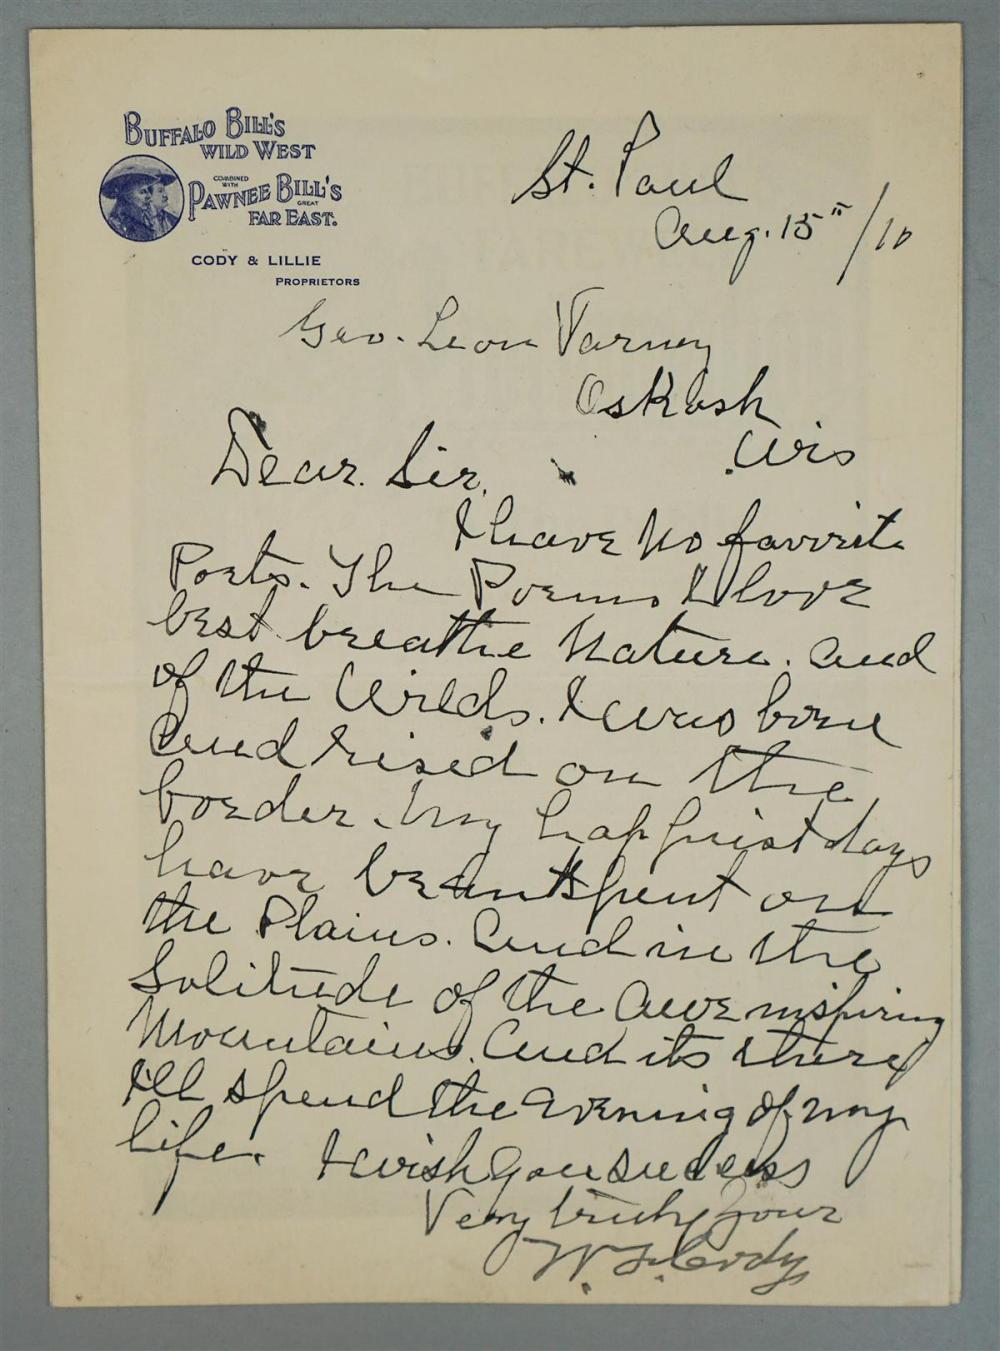 BUFFALO BILL'S
WILD WEST
COMBINED
WITH
PAWNEE BILL'S
GREAT
FAR EAST.
CODY & LILLIE
PROPRIETORS
St. Paul
Aug. 15" /10
Geo. Leon Varney
Oskosh
Wis
Dear Sir.
I have no favorite
Poets. The Poems I love
best breathe Nature. And
of the Wilds. I was born
And rised on the
border. My happiest days
have been spent on
the Plains. And in the
Solitude of the awe inspiring
Mountains. And its there
I'll spend the evening of my
life. I wish you success
Very truly your
W. F. Cody